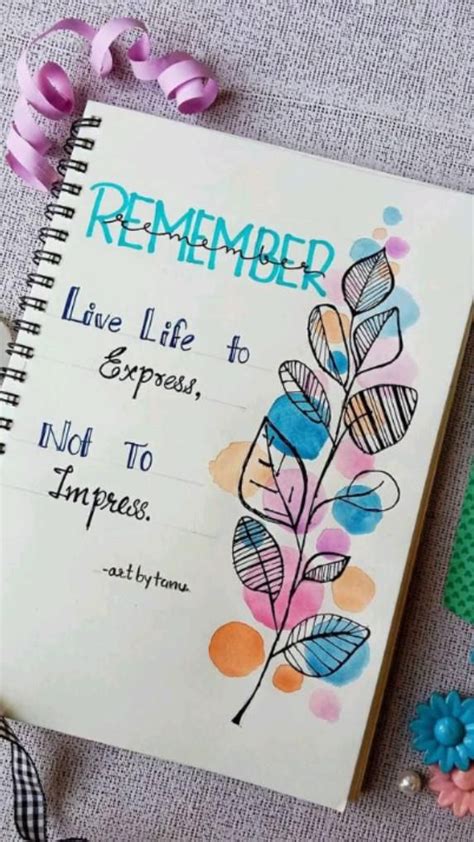 REMEMBER
remember
Live Life to
Express,
Not To
Impress.
-art by tanu